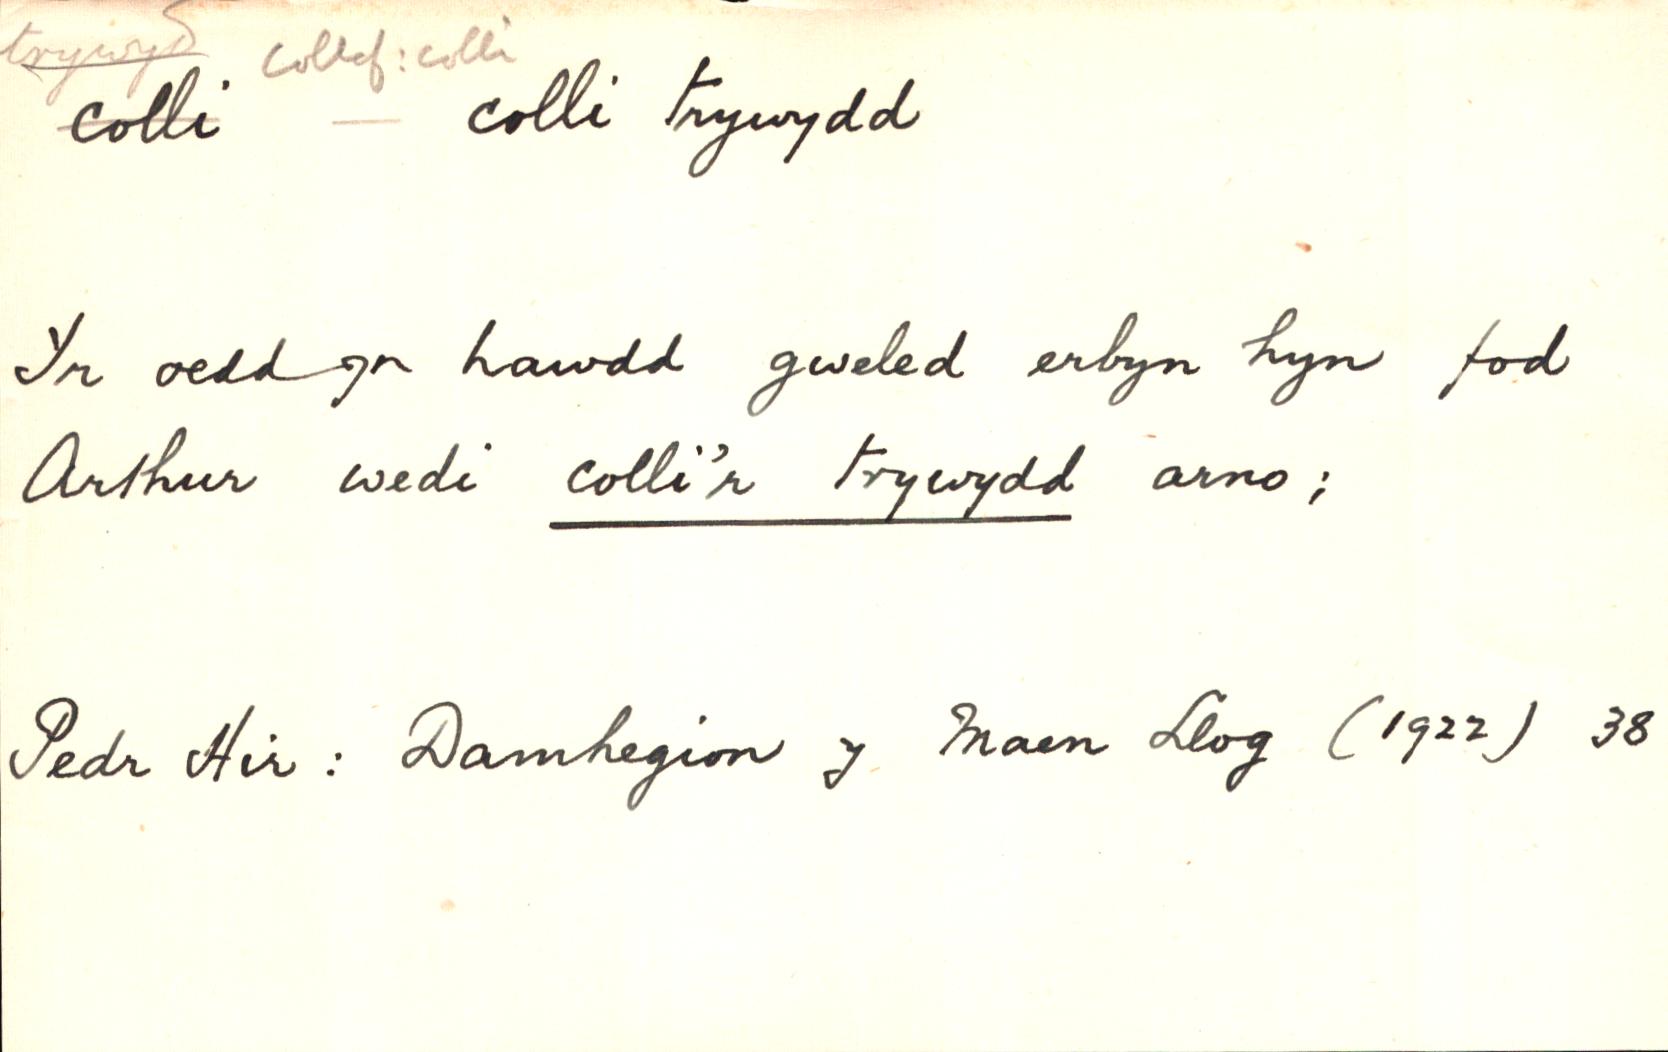 trywydd collaf: colli
colli — colli trywydd
Yr oedd yn hawdd gweled erbyn hyn fod
Arthur wedi colli'r trywydd arno;
Pedr Hir: Damhegion y Maen Llog (1922) 38